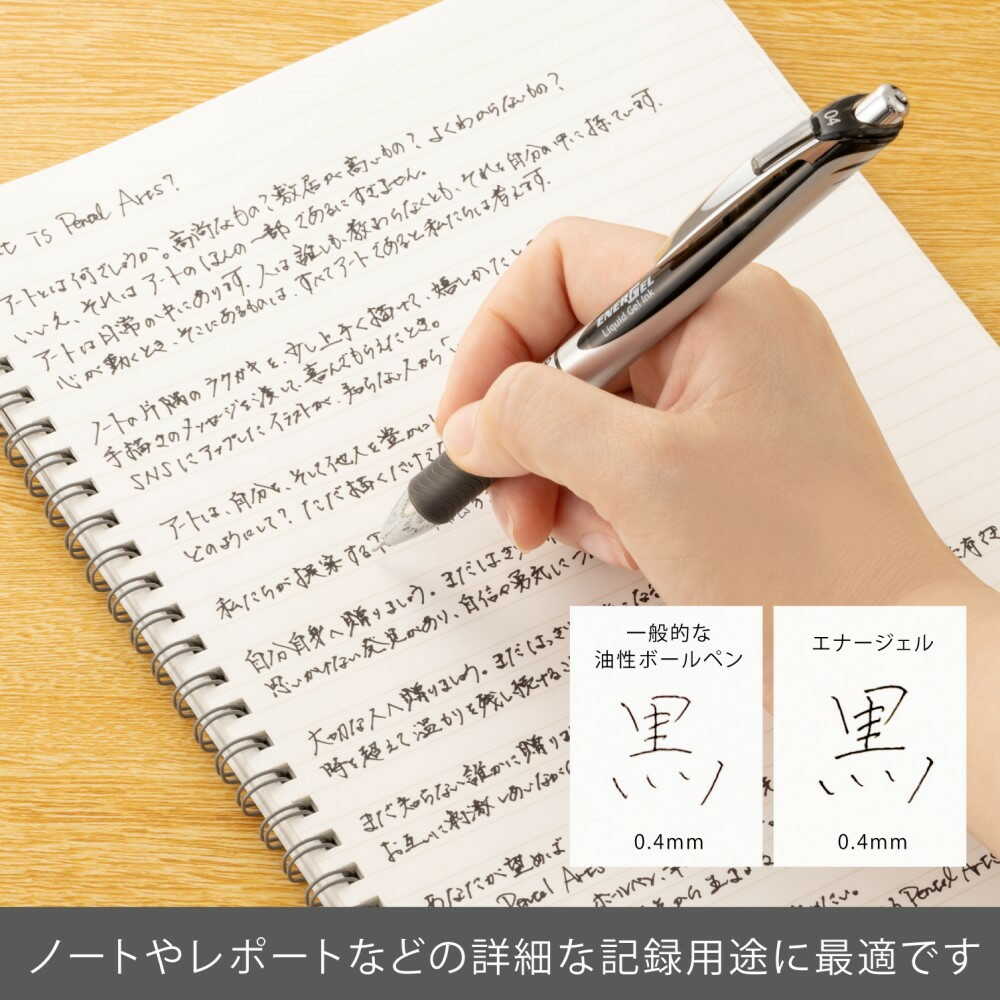 at is Pentel Arts?
アートとは何でしょうか。高尚なもの?敷居が高いもの?よくわからないもの?
いいえ、それはアートのほんの一部であるにすぎません。
アートは日常の中にあります。人は誰しも、教わらなくとも、それを自分の中に持っています。
心が動くとき、そこにあるものは、すべてアートであると私たちは考えます。
ノートの片隅のラクガキを少し上手く描けて、嬉しかったと
手描きのメッセージを凄って、喜んでもらえたとき。
SNSにアップしたイラストが、知らない人から
アートは、自分を、そして他人を豊かに
どのようにして?ただ描くだけで
私たちが提案する
自分自身へ贈りましょう。まだはっき
思いがけない発見があり、自信や勇気に
大切な人へ贈りましょう。まだはっき
時を超えて温かりを残し続ける
まだ知らない誰かに贈りま
お互いに刺激しあいながら
あなたが望めば
Pentel Arts
ENERGEL
Liquid Gel Ink
04
一般的な
油性ボールペン
黒
0.4mm
エナージェル
黒
0.4mm
ノートやレポートなどの詳細な記録用途に最適です